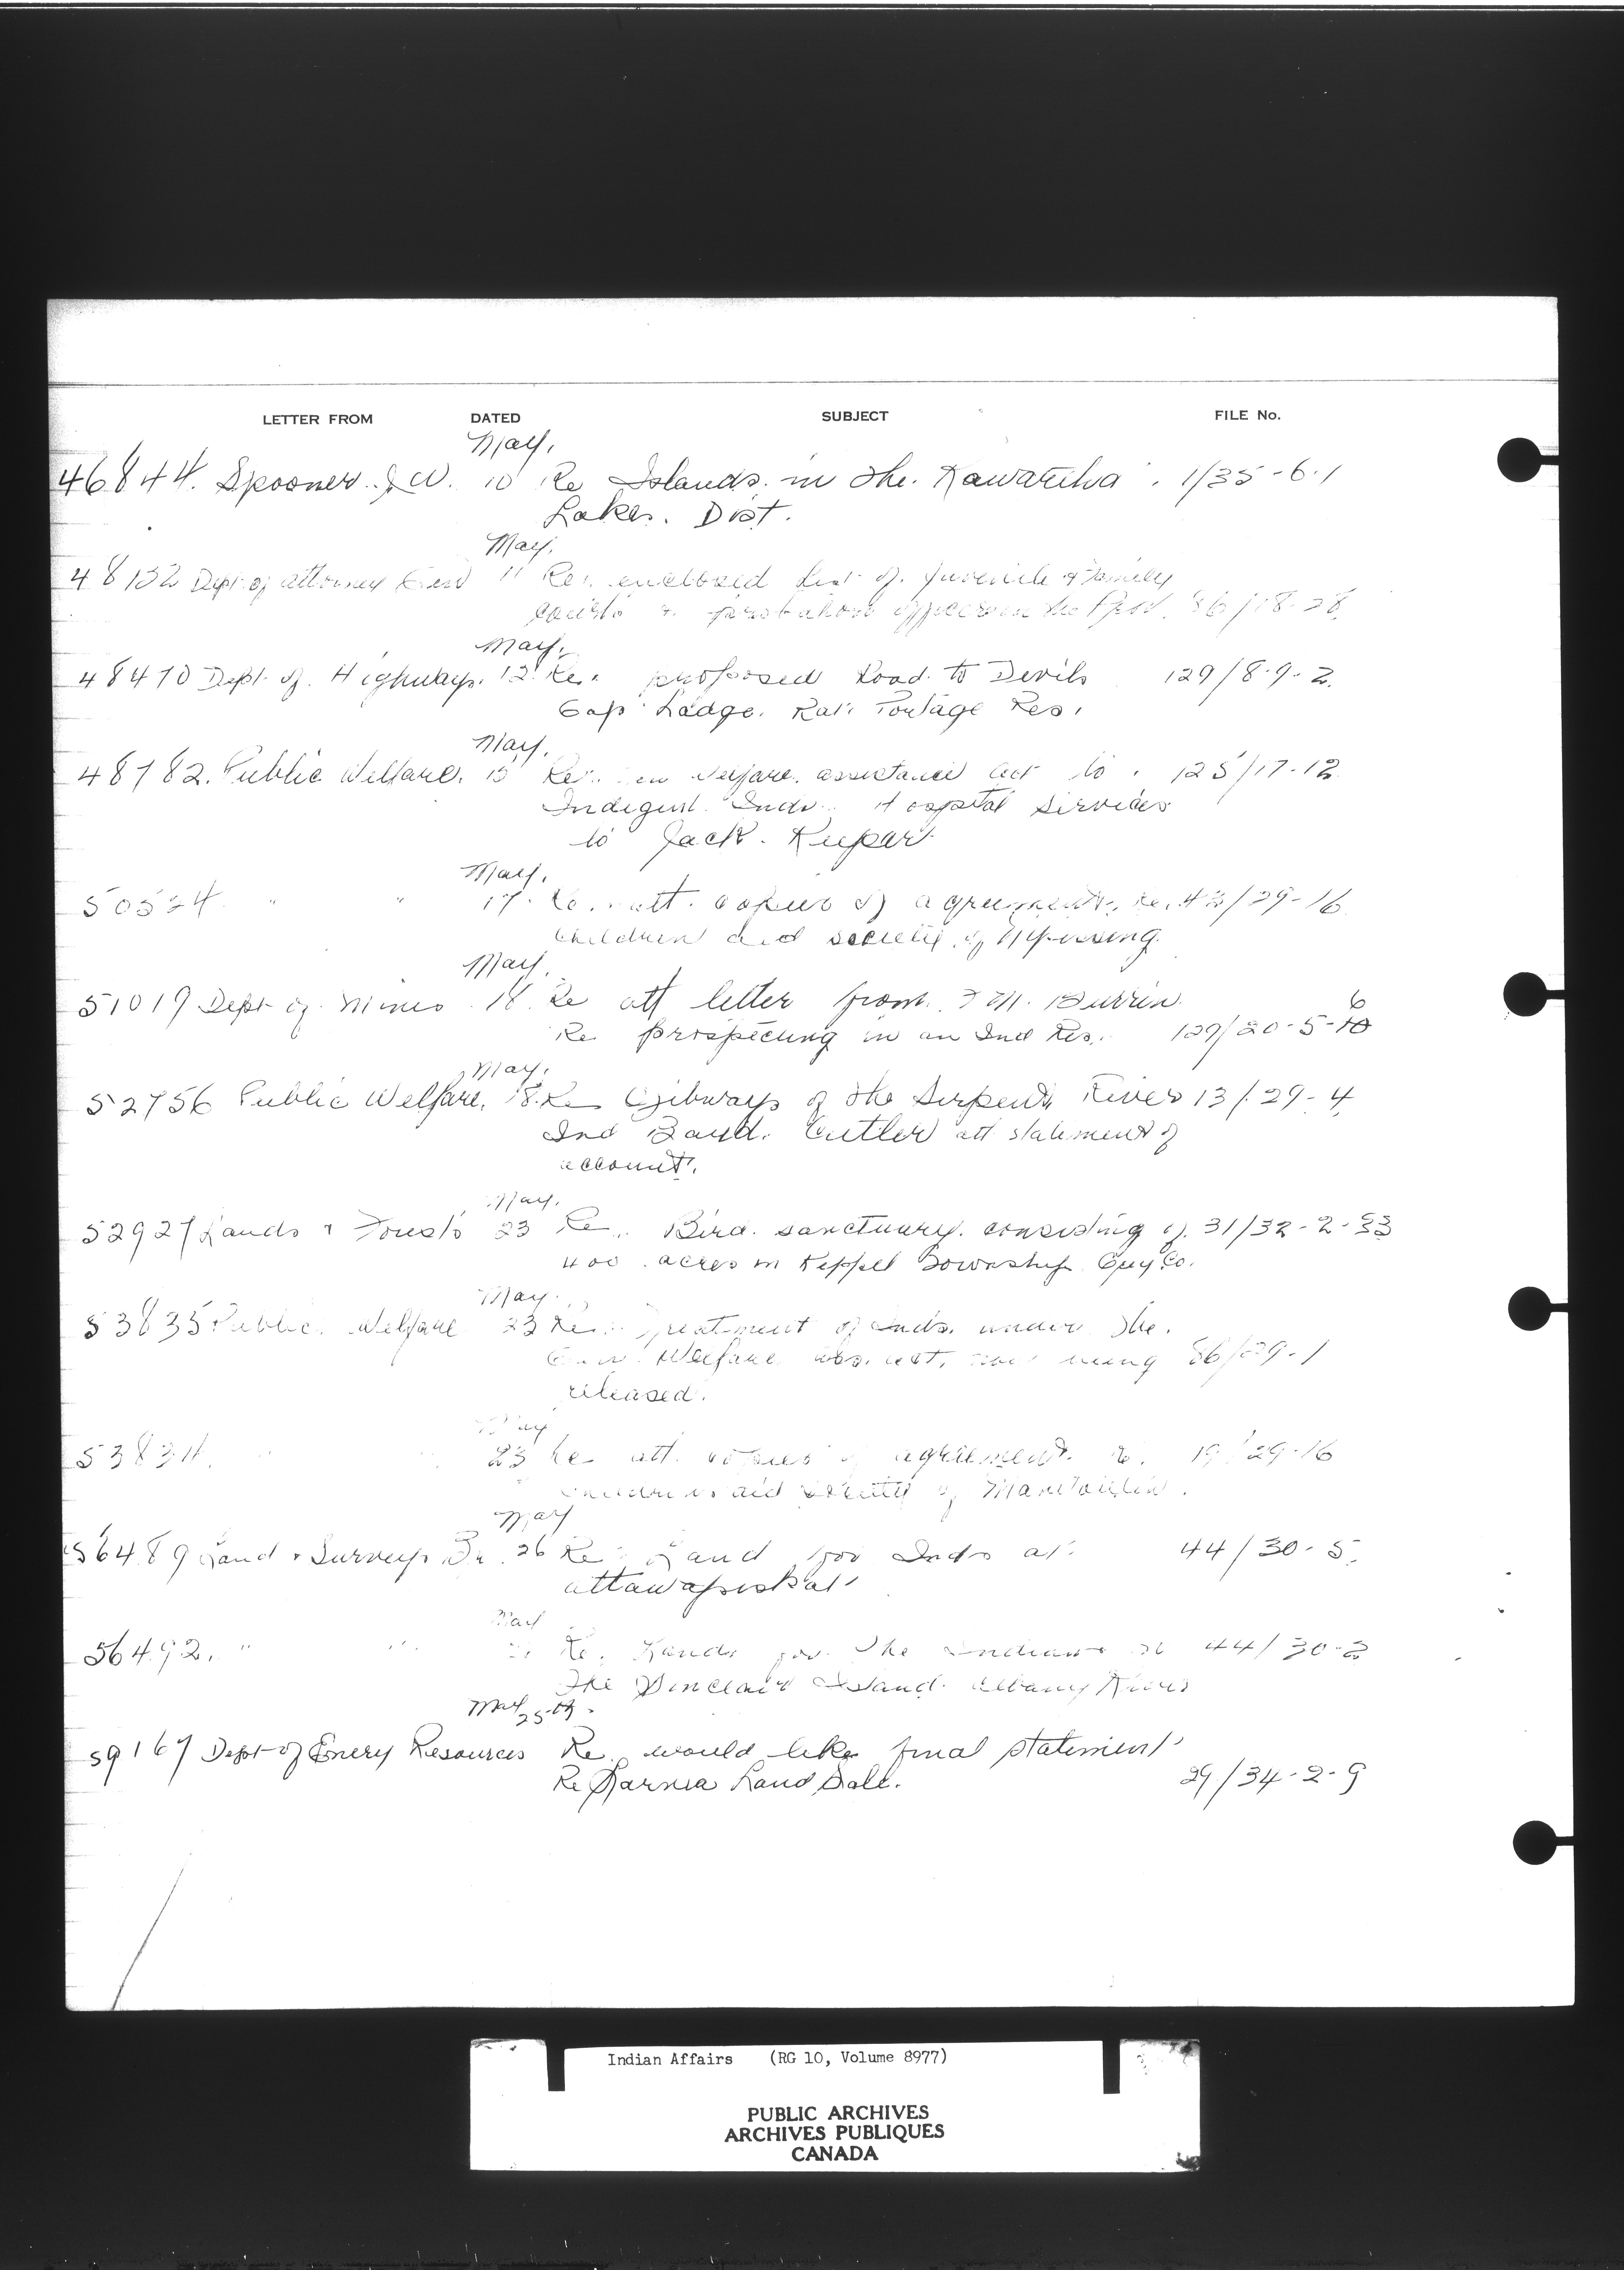 LETTER FROM DATED SUBJECT FILE No.
May.
46844. Spooner. J W. 10 Re Islands in the Kawartha. 1/35-6-1
Lakes. Dist.
May.
48132 Dept of Attorney Genl 11 Re. enclosed list of juvenile & family
courts & probation officers in the Prov. 86/18-28
May.
48470 Dept. of Highways. 12 Re. proposed Road to Devils 129/8-9-2.
Gap Lodge. Rat Portage Res.
May.
48782. Public Welfare. 15 Re. Welfare assistance act to 125/17-12
Indigent Inds. Hospital services
to Jack. Keeper
May.
50524 " " 17. Re. att. copies of agreements. re. 43/29-16
Children aid society of Nipissing.
May.
51019 Dept of Mines 18 Re att letter from. Burrin
Re prospecting in an Ind Res. 129/20-5-10 6
May.
52756 Public Welfare. 18. Re Ojibways of the Serpent River 13/29-4
Ind Band. Cutler att statement of
account.
May.
52927 Lands & Forests 23 Re. Bird sanctuary. consisting of 31/32-2-33
400 acres in Keppel Township Grey Co.
May.
53835 Public Welfare 23 Re. Treatment of Inds. under the.
Gen. Welfare Ass. act, now being 86/29-1
released.
May
53834. " " 23 Re att. copies of agreement re. 19/29-16
Childrens aid Society of Manitoulin.
May
56489 Land & Surveys Br. 26 Re Land for Inds at 44/30-5.
Attawapiskat
May
56492. " " Re. Lands for the Indians at 44/30-2
The Sinclair Island. Albany River
May 25th.
59167 Dept of Enery Resources Re. would like final statement
Re Sarnia Land Sale. 29/34-2-9
Indian Affairs (RG 10, Volume 8977)
PUBLIC ARCHIVES
ARCHIVES PUBLIQUES
CANADA